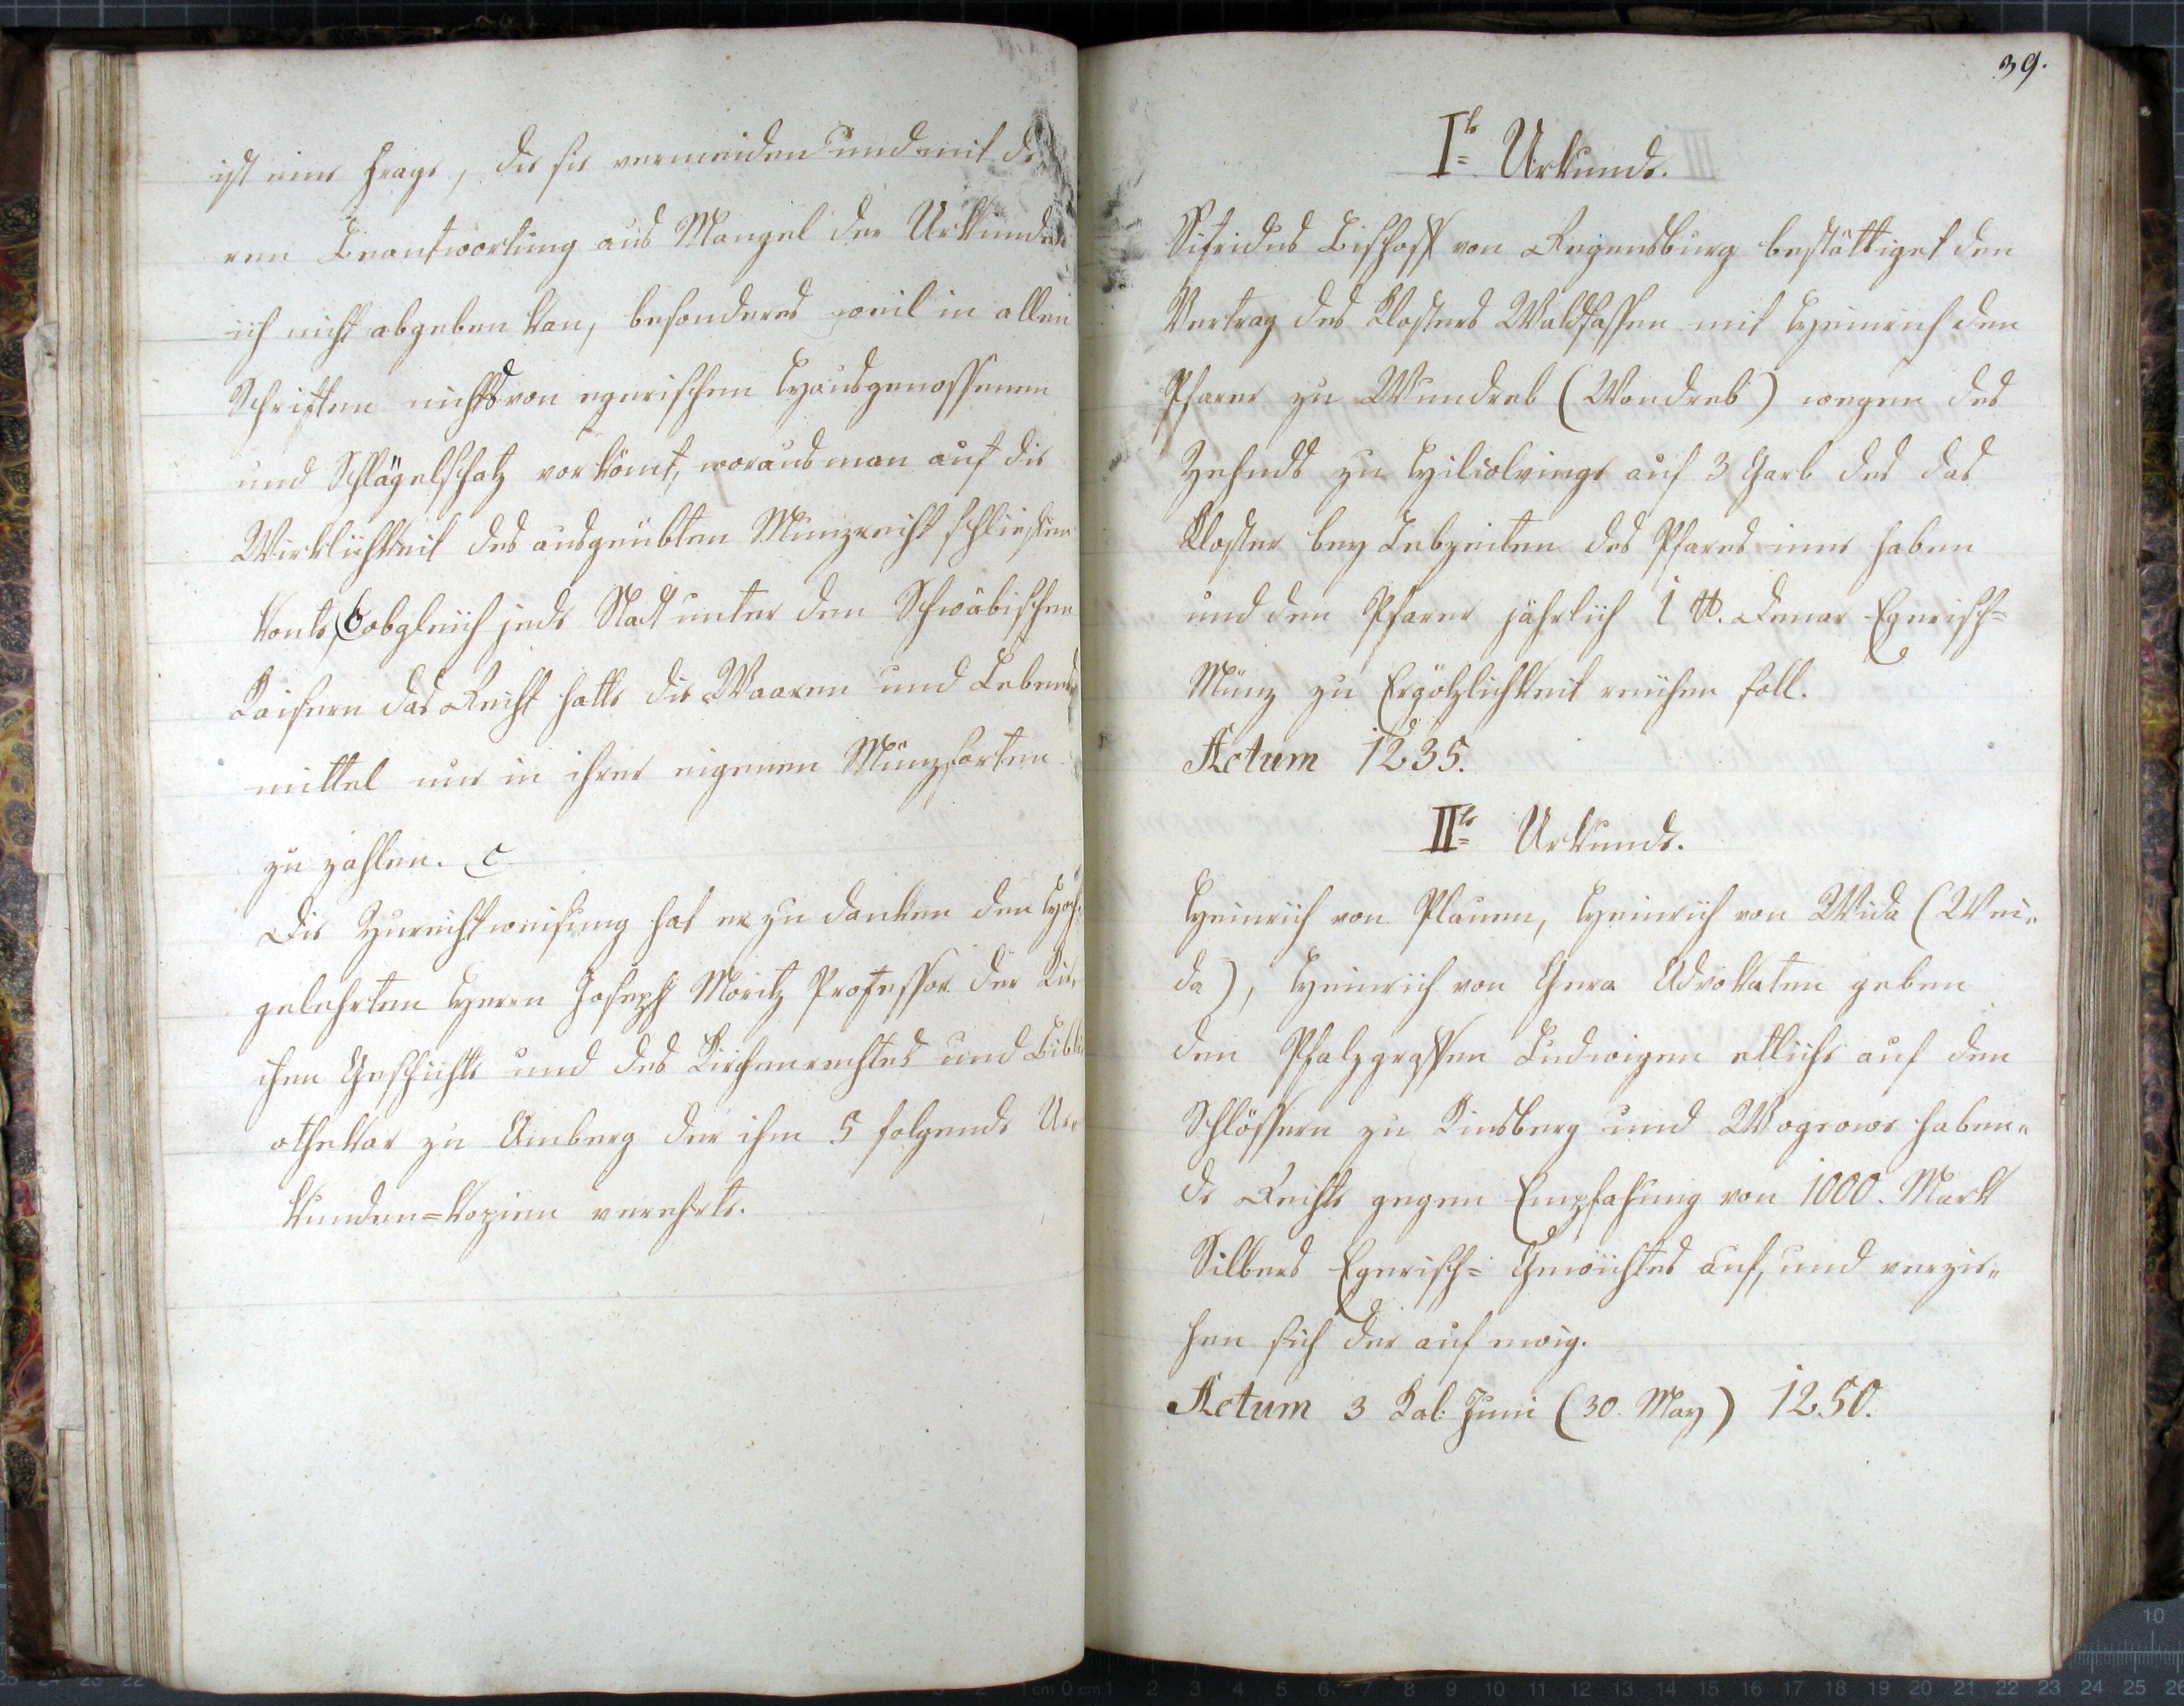 ist eine Frage, die sie vermeiden und mit de
ren Beantwortung aus Mangel der Urkunden
ich nicht abgeben kan, besonders weil in allen
Schriften nichts von egerischen Hausgenossenen
und Schlägelschatz vorkömt, woraus man auf die
Wirklichkeit des ausgeübten Münzrecht schließen
konte, obgleich jede Stadt unter den Schwäbischen
Kaisern das Recht hatte die Waaren und Lebens
mittel nur in ihrer eigenen Münzsorten
zu zahlen. c
Die Zurechtweisung hat er zu danken den Hoch
gelehrten Herrn Joseph Moritz Professor der Kir
chen Geschichte und des Kirchenrechtes und Bibli
othekar zu Amberg der ihm 5 folgende Ur
kunden=kopien verehrte.
39.
I.te Urkunde.
Sifridus Bischoff von Regensburg bestättiget den
Vertrag des Klosters Waldsassen mit Heinrich den
Pfarer zu Wundreb (Wondreb) wegen des
Zehnds zu auf 3 Garb des das
Kloster bey Lebzeiten des Pfares inne haben
und den Pfarer jährlich 1 ℔. Denar Egerisch=
Münz zu Ergözlichkeit reichen soll.
Actum 1235.
II.te Urkunde.
Heinrich von Plauen, Heinrich von Wida (Wei„
da), Heinrich von Gera Advokaten geben
den Pfalzgraffen Ludwigen etliche auf den
Schlössern zu Kinsberg und Wogrowe haben„
de Rechte gegen Empfahung von 1000. Mark
Silbers Egerisch= Gewichtes auf, und verzie„
hen sich der auf ewig.
Actum 3 Kal: Juni (30. May) 1250.